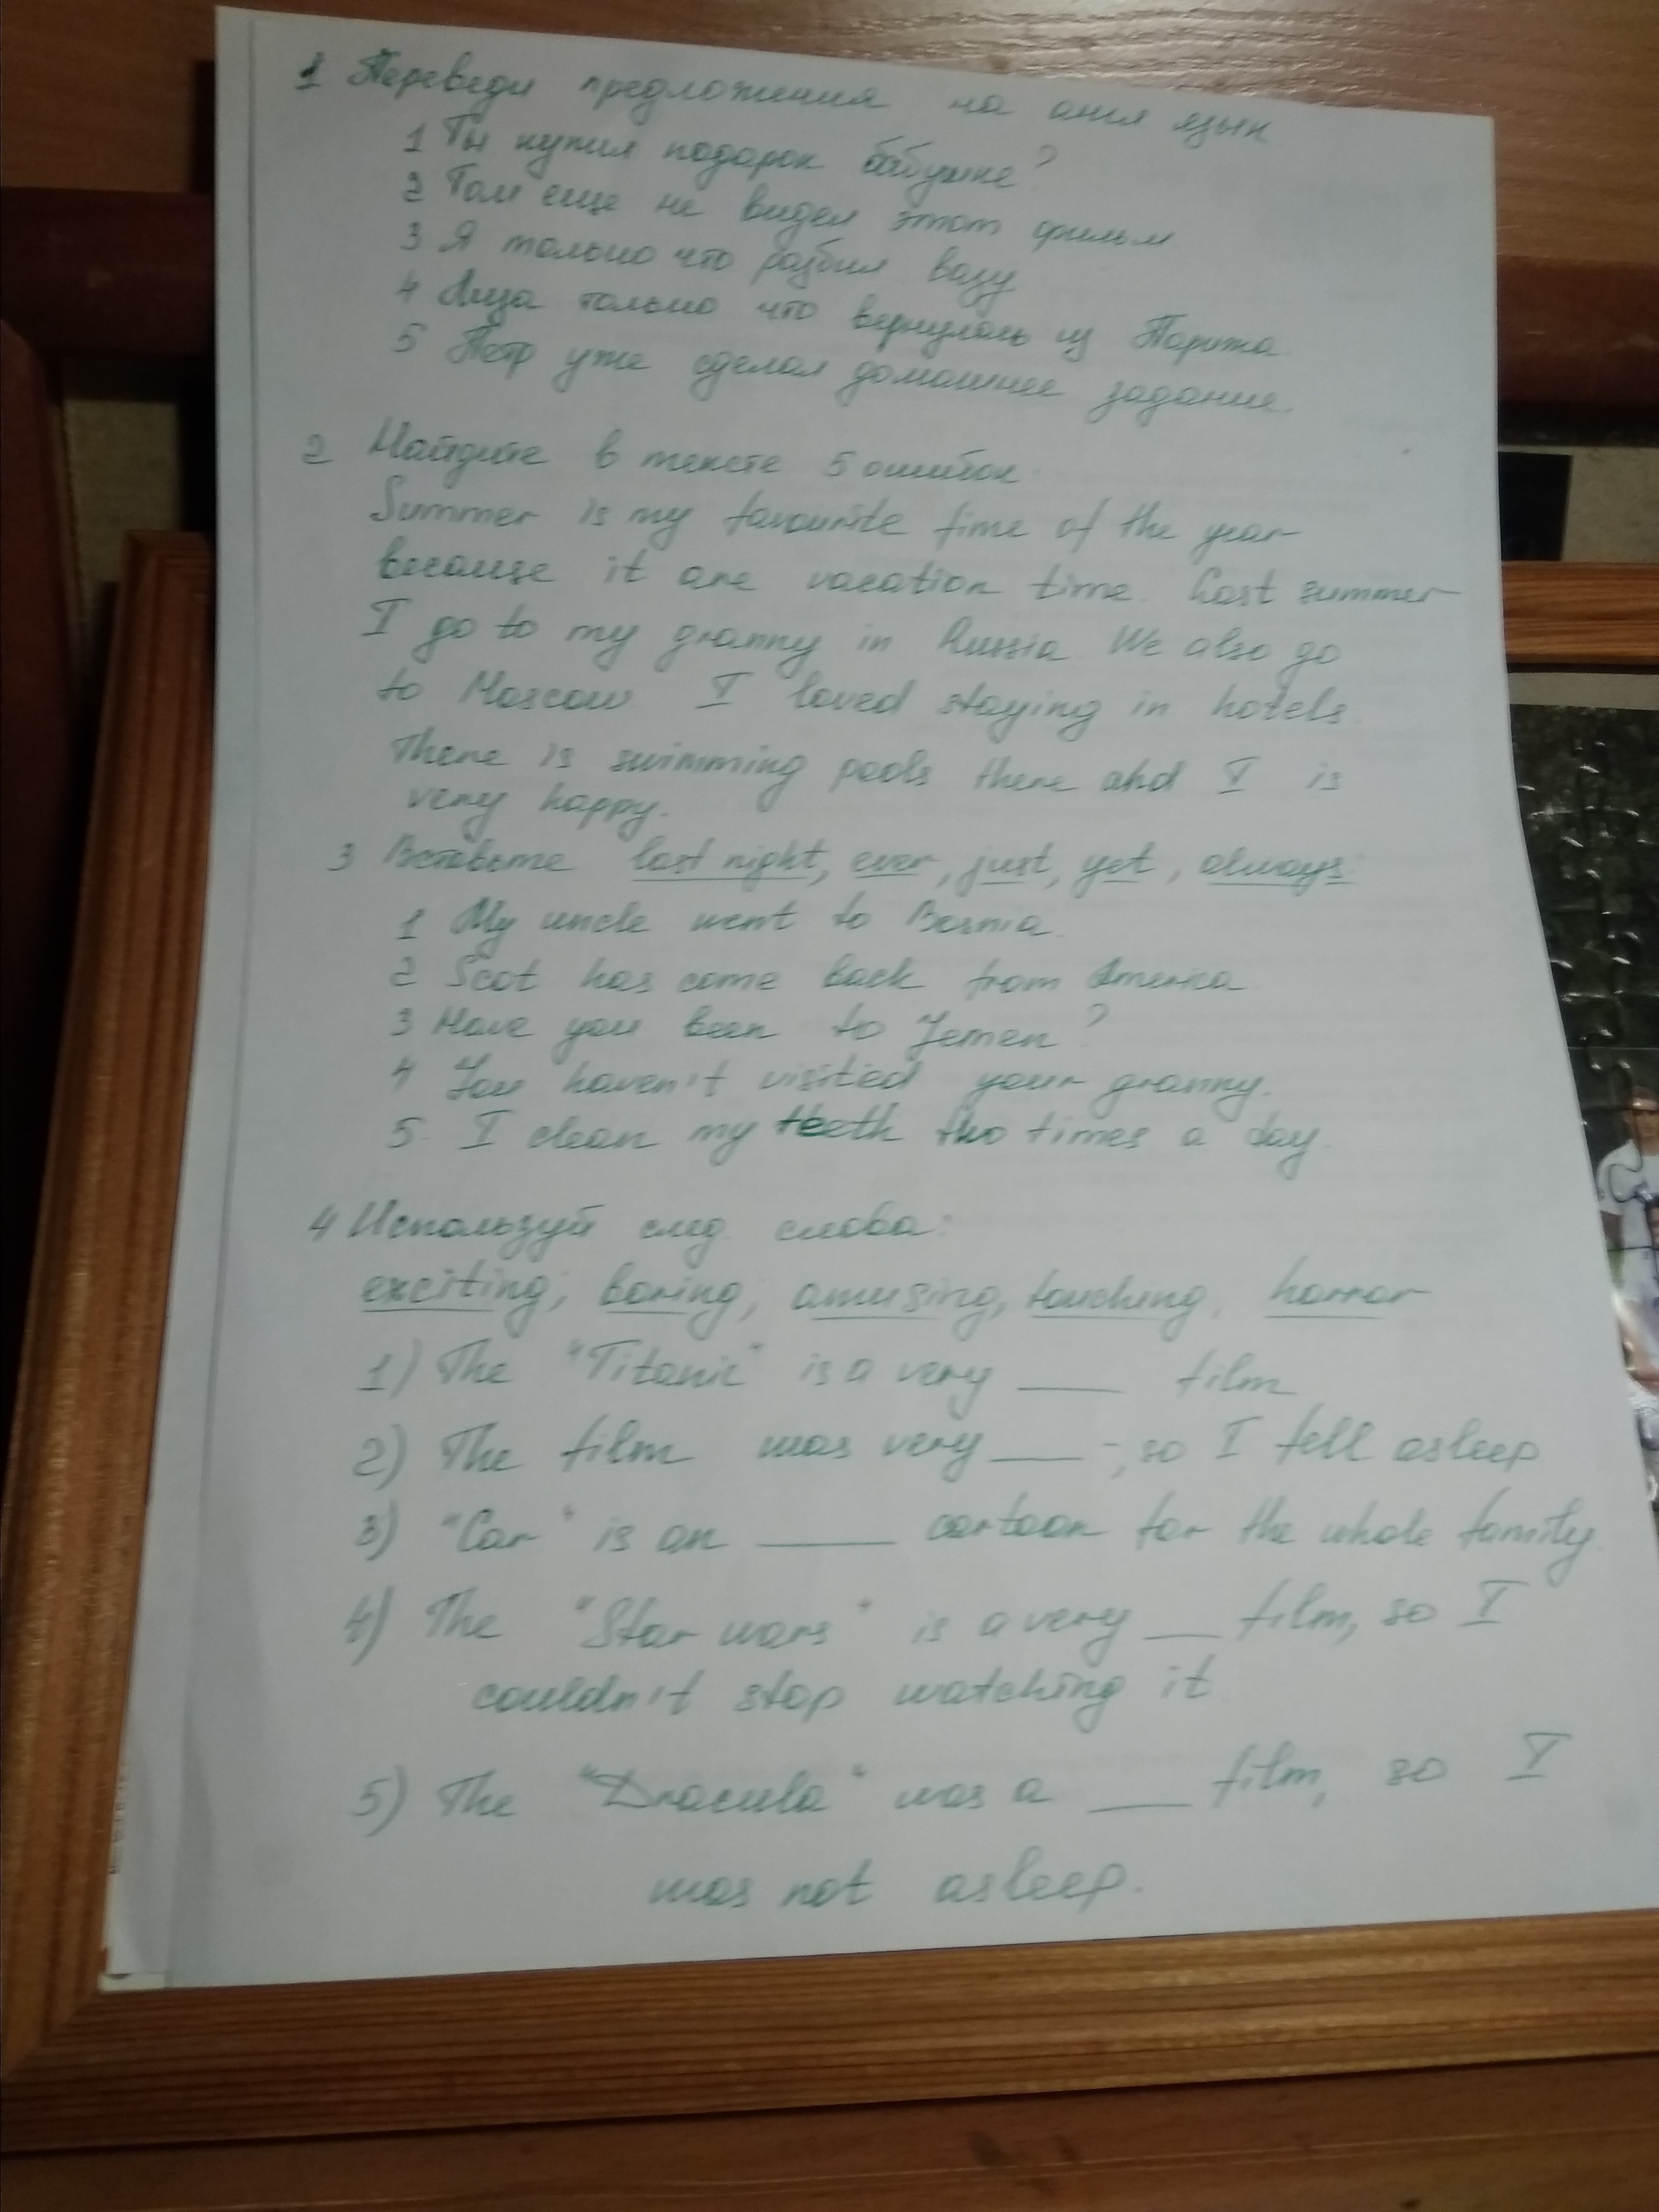 1 Переведи предложения на англ язык
1 Ты купил подарок бабушке?
2 Том еще не видел этот фильм
3 Я только что разбил вазу
4 Лиза только что вернулась из Парижа.
5 Петр уже сделал домашнее задание.
2 Найдите в тексте 5 ошибок.
Summer is my favourite time of the year
because it are vacation time. Last summer
I go to my granny in Russia. We also go
to Moscow. I loved staying in hotels.
There is swimming pools there and I is
very happy.
3 Вставьте last night, ever, just, yet, always:
1 My uncle went to Bosnia.
2 Scot has come back from America.
3 Have you been to Yemen?
4 You haven't visited your granny.
5. I clean my teeth two times a day.
4 Используй след. слова:
exciting, boring, amusing, touching, horror
1) The "Titanic" is a very ___ film
2) The film was very ___, so I fell asleep
3) "Car" is an ___ cartoon for the whole family.
4) The "Star wars" is a very ___ film, so I
couldn't stop watching it.
5) The "Dracula" was a ___ film, so I
was not asleep.